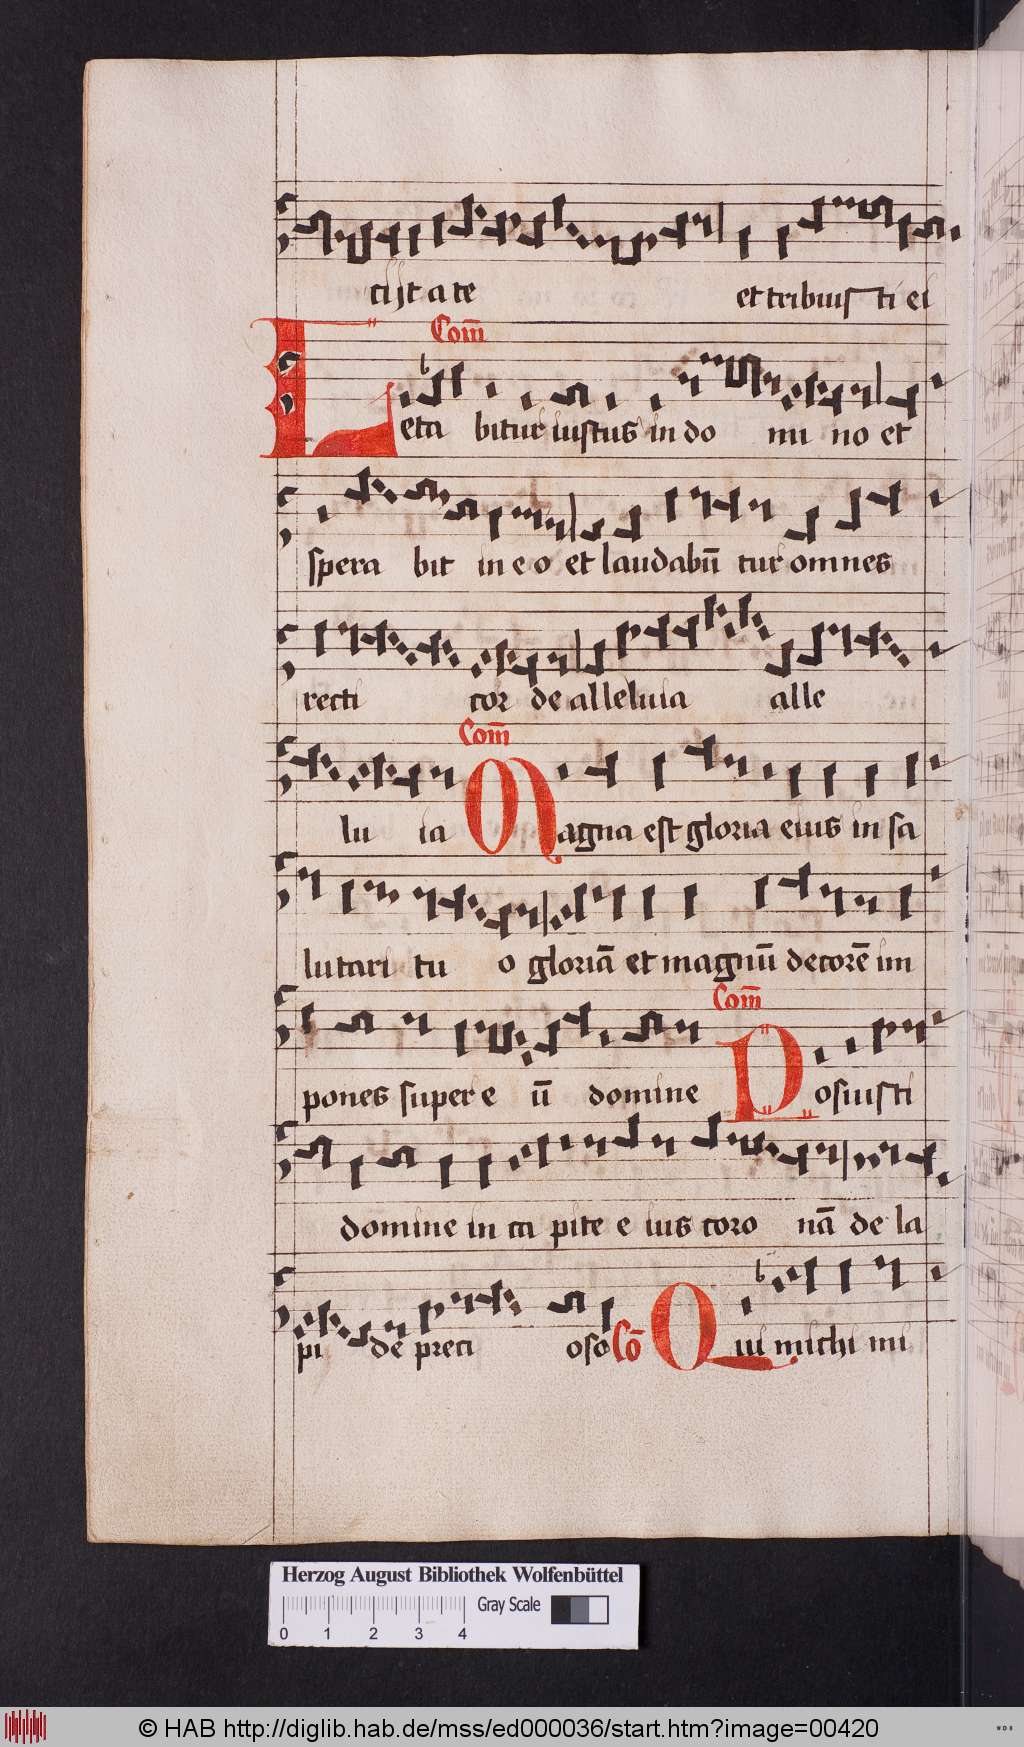 cijtate et tribuisti ei
Com̄
Letabitur iustus in domino et
sperabit in eo et laudabūtur omnes
recti corde alleluia alle
Com̄
luia Magna est gloria eius in sa
lutari tuo gloriā et magnū decorē im
Com̄
pones super eū domine Posuisti
domine in capite eius coronā de la
pide precioso Cō Qui michi mi
Herzog August Bibliothek Wolfenbüttel
Gray Scale
0 1 2 3 4
© HAB http://diglib.hab.de/mss/ed000036/start.htm?image=00420